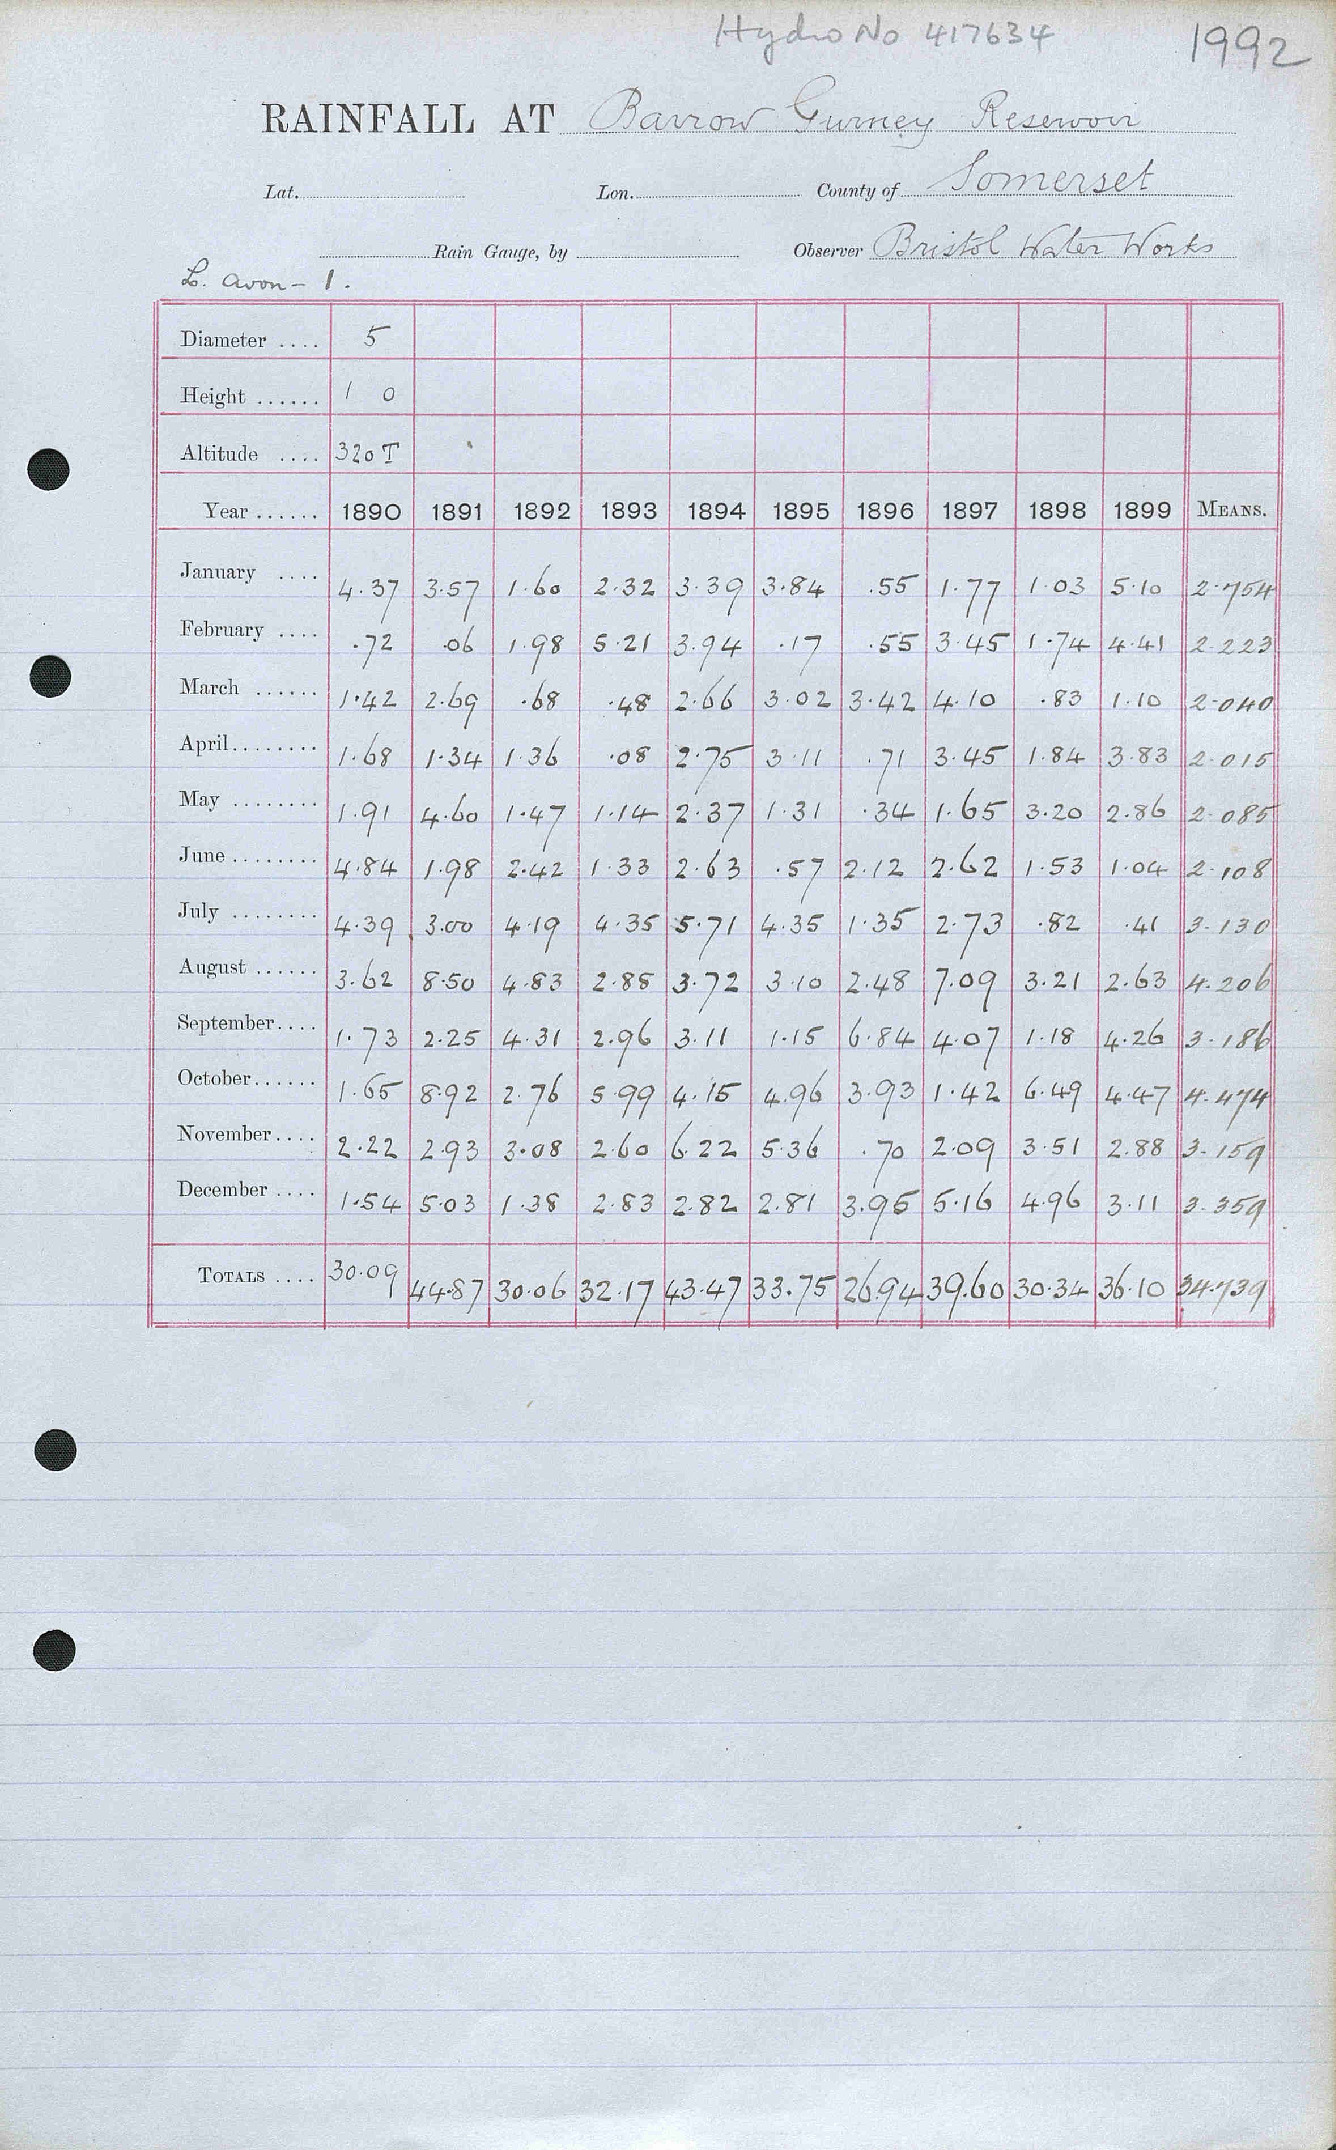 Hydro No 417634 1992
RAINFALL AT Barrow Gurney Reservoir
Lat. Lon. County of Somerset
Rain Gauge, by Observer Bristol Water Works
L. Avon - 1.
Diameter .... 5
Height ...... 1 0
Altitude .... 320 T
Year ...... 1890 1891 1892 1893 1894 1895 1896 1897 1898 1899 MEANS.
January .... 4.37 3.57 1.60 2.32 3.39 3.84 .55 1.77 1.03 5.10 2.754
February .... .72 .06 1.98 5.21 3.94 .17 .55 3.45 1.74 4.41 2.223
March ...... 1.42 2.69 .68 .48 2.66 3.02 3.42 4.10 .83 1.10 2.040
April ........ 1.68 1.34 1.36 .08 2.75 3.11 .71 3.45 1.84 3.83 2.015
May ........ 1.91 4.60 1.47 1.14 2.37 1.31 .34 1.65 3.20 2.86 2.085
June ........ 4.84 1.98 2.42 1.33 2.63 .57 2.12 2.62 1.53 1.04 2.108
July ........ 4.39 3.00 4.19 4.35 5.71 4.35 1.35 2.73 .82 .41 3.130
August ...... 3.62 8.50 4.83 2.88 3.72 3.10 2.48 7.09 3.21 2.63 4.206
September .... 1.73 2.25 4.31 2.96 3.11 1.15 6.84 4.07 1.18 4.26 3.186
October ...... 1.65 8.92 2.76 5.99 4.15 4.96 3.93 1.42 6.49 4.47 4.474
November .... 2.22 2.93 3.08 2.60 6.22 5.36 .70 2.09 3.51 2.88 3.159
December .... 1.54 5.03 1.38 2.83 2.82 2.81 3.95 5.16 4.96 3.11 3.359
TOTALS .... 30.09 44.87 30.06 32.17 43.47 33.75 26.94 39.60 30.34 36.10 34.739